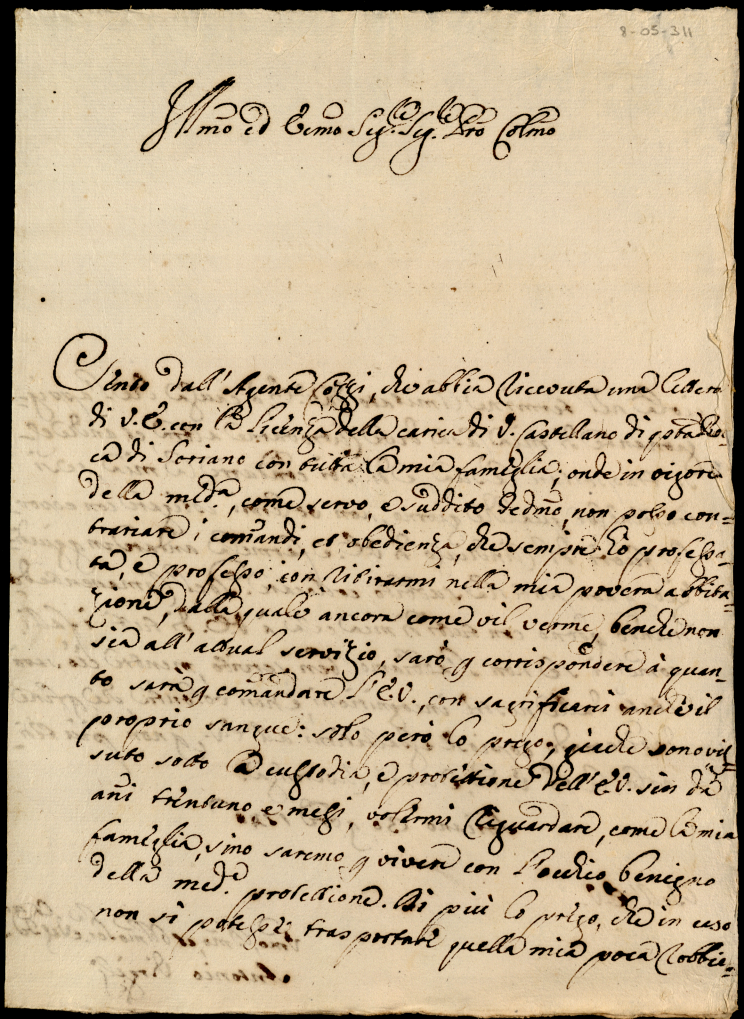 8-05-311
Ill.mo ed Ecc.mo Sig.re Sig.re P.rone Col.mo
Sento dall'Agente Coggi, ch'abbia riceuuta una lettera
di V. E. con la Licenza della carica di V. Castellano di q.sta Roc-
ca di Soriano con tutta la mia fameglia; onde in vigore
della med.a, come servo, e suddito Ded.mo, non posso con=
trariare i comandi, et obedienza, che sempre hò professa=
ta, e professo, con ritirarmi nella mia povera abbita=
zione, dalla quale ancora come vil verme, benche non
sia all'attual servizio, sarò p corrispondere à quan=
to sarà p comandare l'E.V., con sagrificarci anche il
proprio sangue: solo però lo prego, giache sono vis=
suto sotto la custodia, e protettione dell'E.V. sin da
anni trentuno, e mesi, volermi riguardare, come la mia
fameglia, sino saremo p vivere con l'occhio benigno
della med.e protettione. Di più lo prego, che in caso
non si potesse trasportare quella mia poca robbic=